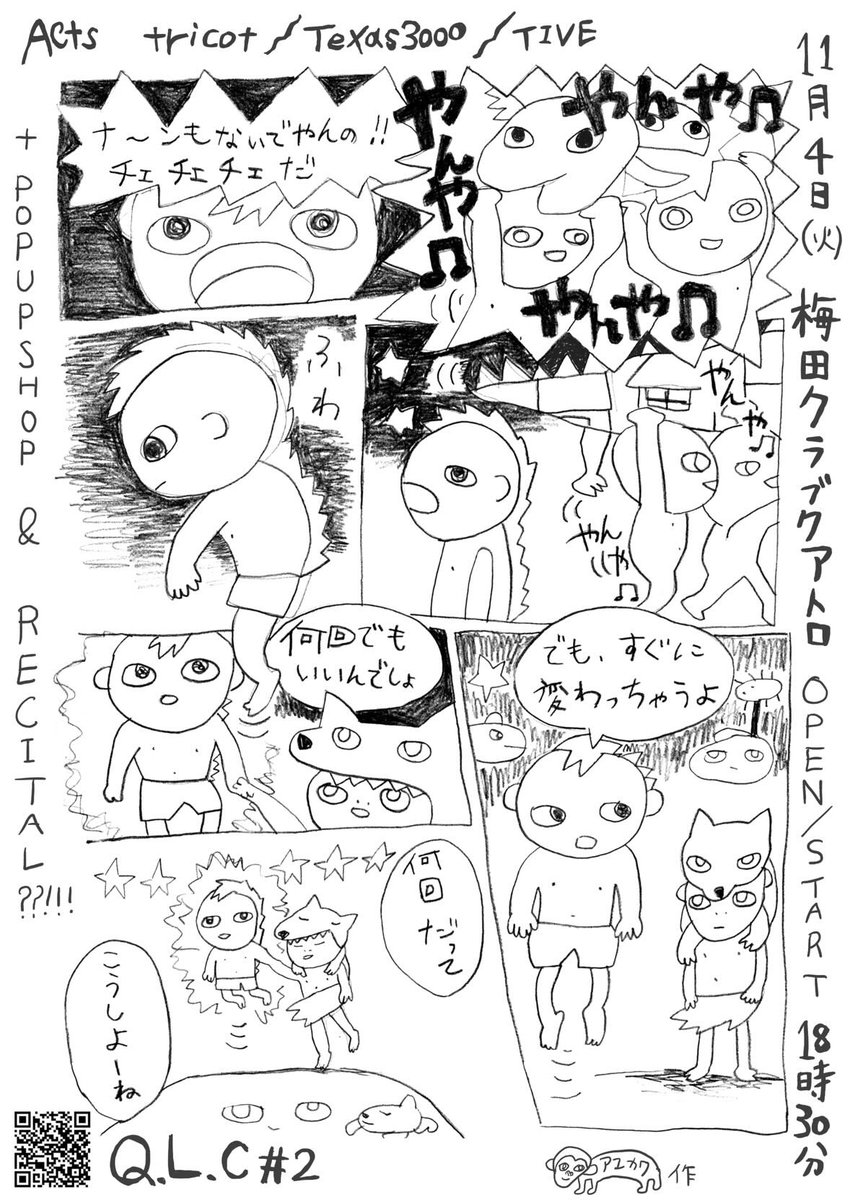 Acts tricot/Texas3000/TIVE
11月4日(火) 梅田クラブクアトロ OPEN/START 18時30分
+ POPUPSHOP & RECITAL??!!!
ナ〜ンもないでやんの!!
チェ チェ チェ だ
やんや♫
やんや♫
やんや♫
ふわ
やんや♫
やんや♫
何回でも
いいんでしょ
でも、すぐに
変わっちゃうよ
何回だって
こうしよーね
Q.L.C #2
アユカワ 作